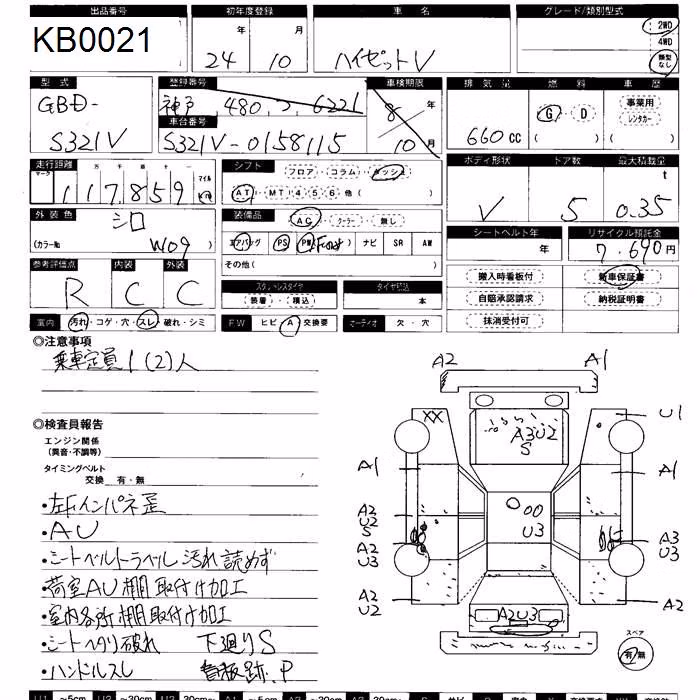 出品番号 初年度登録 車名 グレード/類別型式
KB0021 24 10 ハイゼットV 2WD
4WD
類型なし
型式 登録番号 車検期限 排気量 燃料 車歴
GBD- 神戸 480 6221 8年 G D 事業用
レンタカー
車台番号
S321V S321V-0158115 10月 660cc ( ) ( )
走行距離 シフト フロア・コラム・ダッシュ ボディ形状 ドア数 最大積載量
マーク 十 万 千 百 十 一 マイル t
117,859 km AT・MT(4・5・6)他( ) V 5 0.35
外装色 シロ 装備品 AC・クーラー・無し
シートベルト年 リサイクル預託金
(カラーNo. W09) エアバッグ PS PW ナビ SR AW 年 7,690円
参考評価点 内装 外装 その他( ) 搬入時看板付 新車保証書
R C C スタッドレスタイヤ タイヤ積込 自賠承認請求 納税証明書
(装着・積込) 本 抹消受付可
室内 汚れ・コゲ・穴・スレ・破れ・シミ F.W ヒビ・A・交換要 オーディオ 欠・穴
◎注意事項
乗車定員 1(2)人
◎検査員報告
エンジン関係
(異音・不調等)
タイミングベルト
交換 有・無
・左Fインパネ歪
・AU
・シートベルトラベル汚れ読めず
・荷室AU棚取付け加工
・室内各所棚取付け加工
・シートヘタリ破れ 下廻りS
・ハンドルスレ 看板跡.P
A2 A1
XX U1
A3U2
S
A1 A1
A2
U2
S
A2
U3
U3
A3
U3
A2
U2
A2U3 A2
スペア
有・無